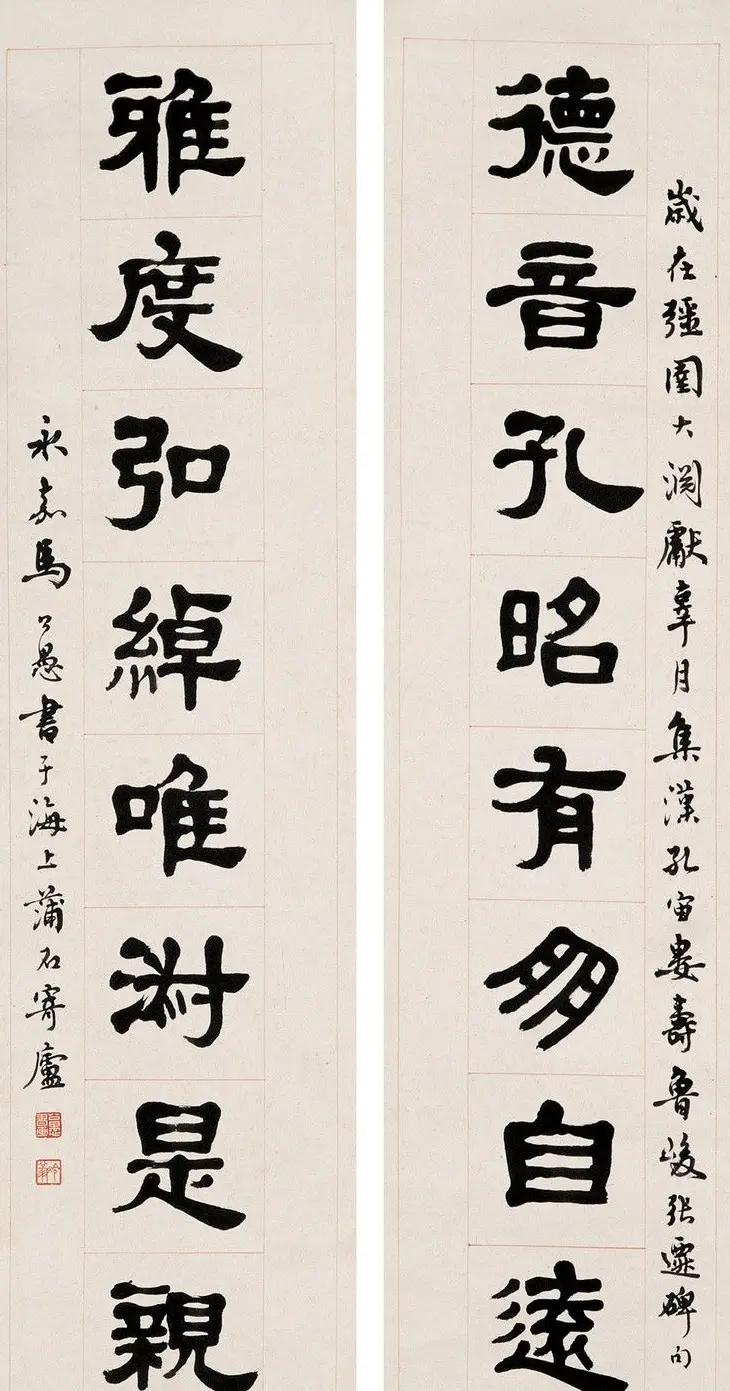 歲在彊圉大淵獻辜月集漢孔宙婁壽魯峻張遷碑句
德音孔昭有朋自遠
雅度弘綽唯淑是親
永嘉馬公愚書于海上蒲石寄廬